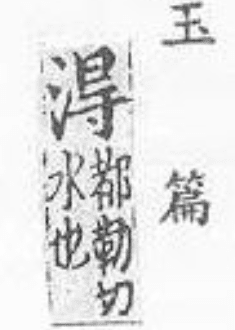 玉篇
淂
都勒切
水也